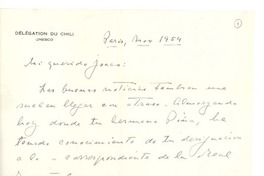 DÉLÉGATION DU CHILI
UNESCO
Paris, Nov 1954
Mi querido Jonás:
Las buenas noticias también
suelen llegar con atraso. Almorzando
hoy donde tu hermano Díaz, he
tenido conocimiento de tu designación
a la correspondiente de la Real